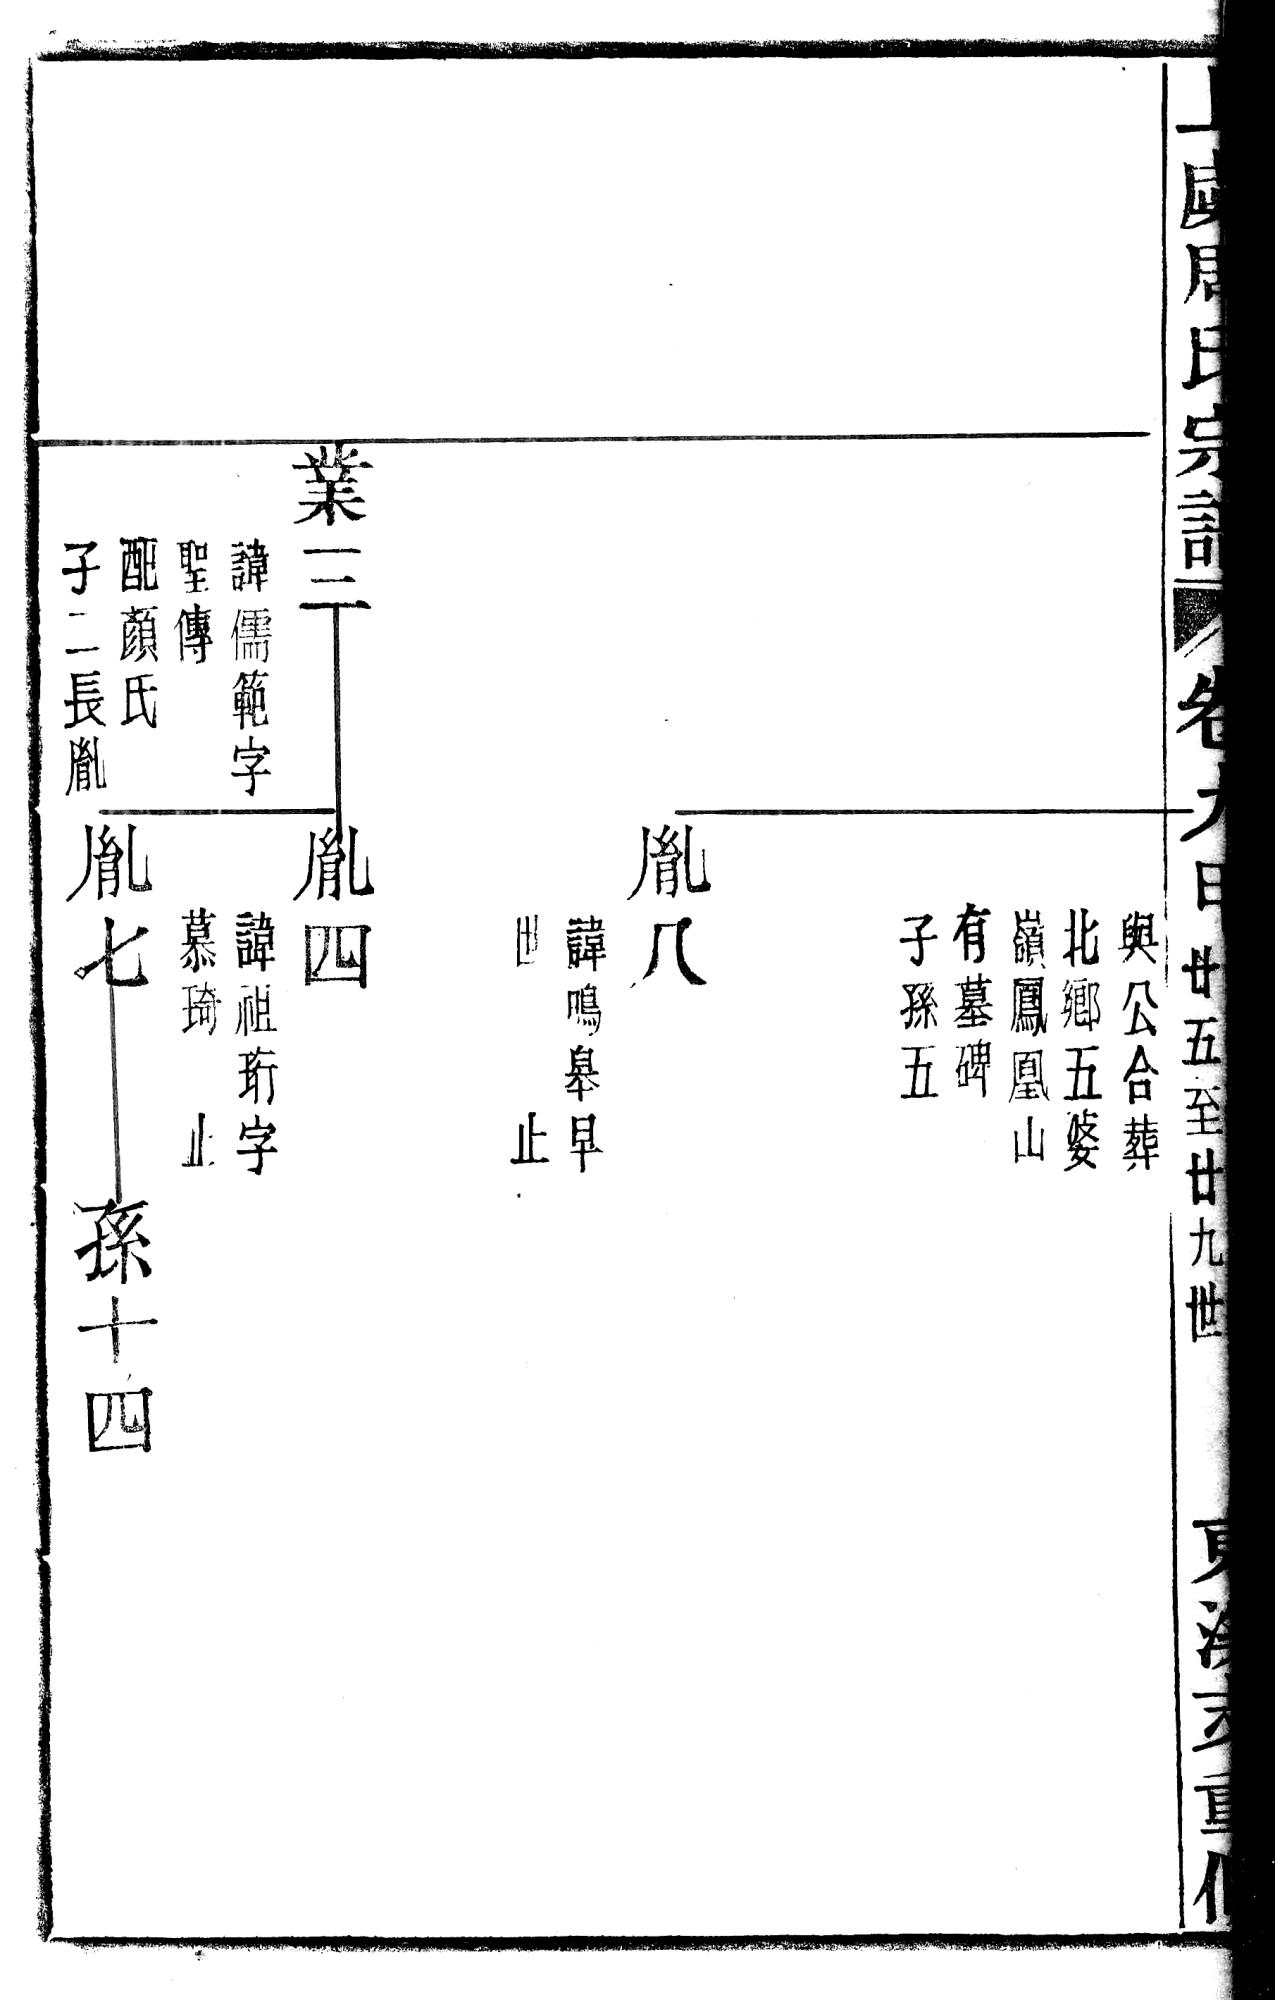 上虞周氏宗譜
卷九
廿五至廿九世
重修
與公合葬
北鄉五婆
嶺鳳凰山
有墓碑
子孫五
胤八
諱鳴皋早
世 止
業三
諱儒範字
聖傳
配顏氏
子二長胤
胤四
諱祖珩字
慕琦 止
胤七
孫十四